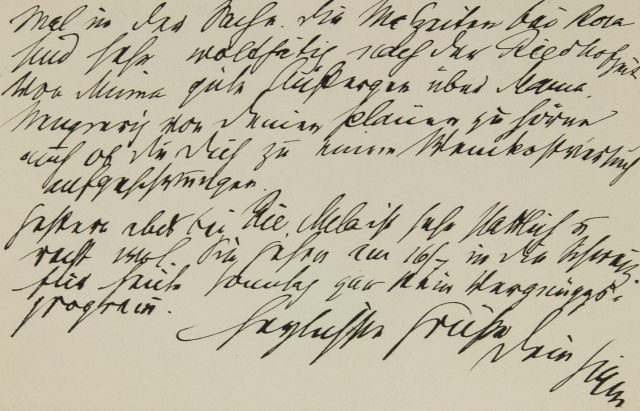 mal in der Sache. Die Mahlzeiten bei Rosa
sind sehr wohlthätig nach der
Von Minna gute über Mama.
Neugierig von Deinen Plänen zu hören
auch ob Du Dich zu einem
aufgeschwungen.
Gestern abd bei Rie. Mela ist sehr stattlich u
recht wol. Sie gehen am 16/7 in die Schweiz
für heute Sonntag gar kein Vergnüggs-
programm.
Herzlichste Grüße
Dein